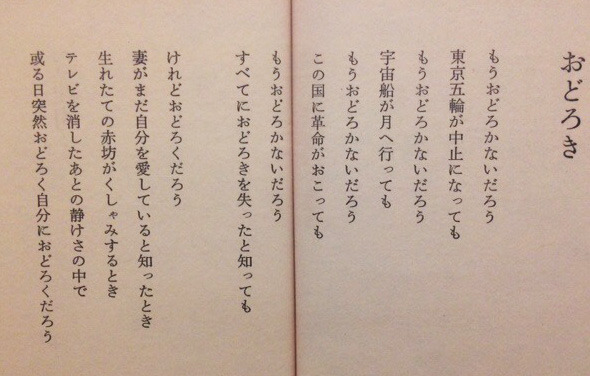 おどろき
もうおどろかないだろう
東京五輪が中止になっても
もうおどろかないだろう
宇宙船が月へ行っても
もうおどろかないだろう
この国に革命がおこっても
もうおどろかないだろう
すべてにおどろきを失ったと知っても
けれどおどろくだろう
妻がまだ自分を愛していると知ったとき
生れたての赤坊がくしゃみするとき
テレビを消したあとの静けさの中で
或る日突然おどろく自分におどろくだろう